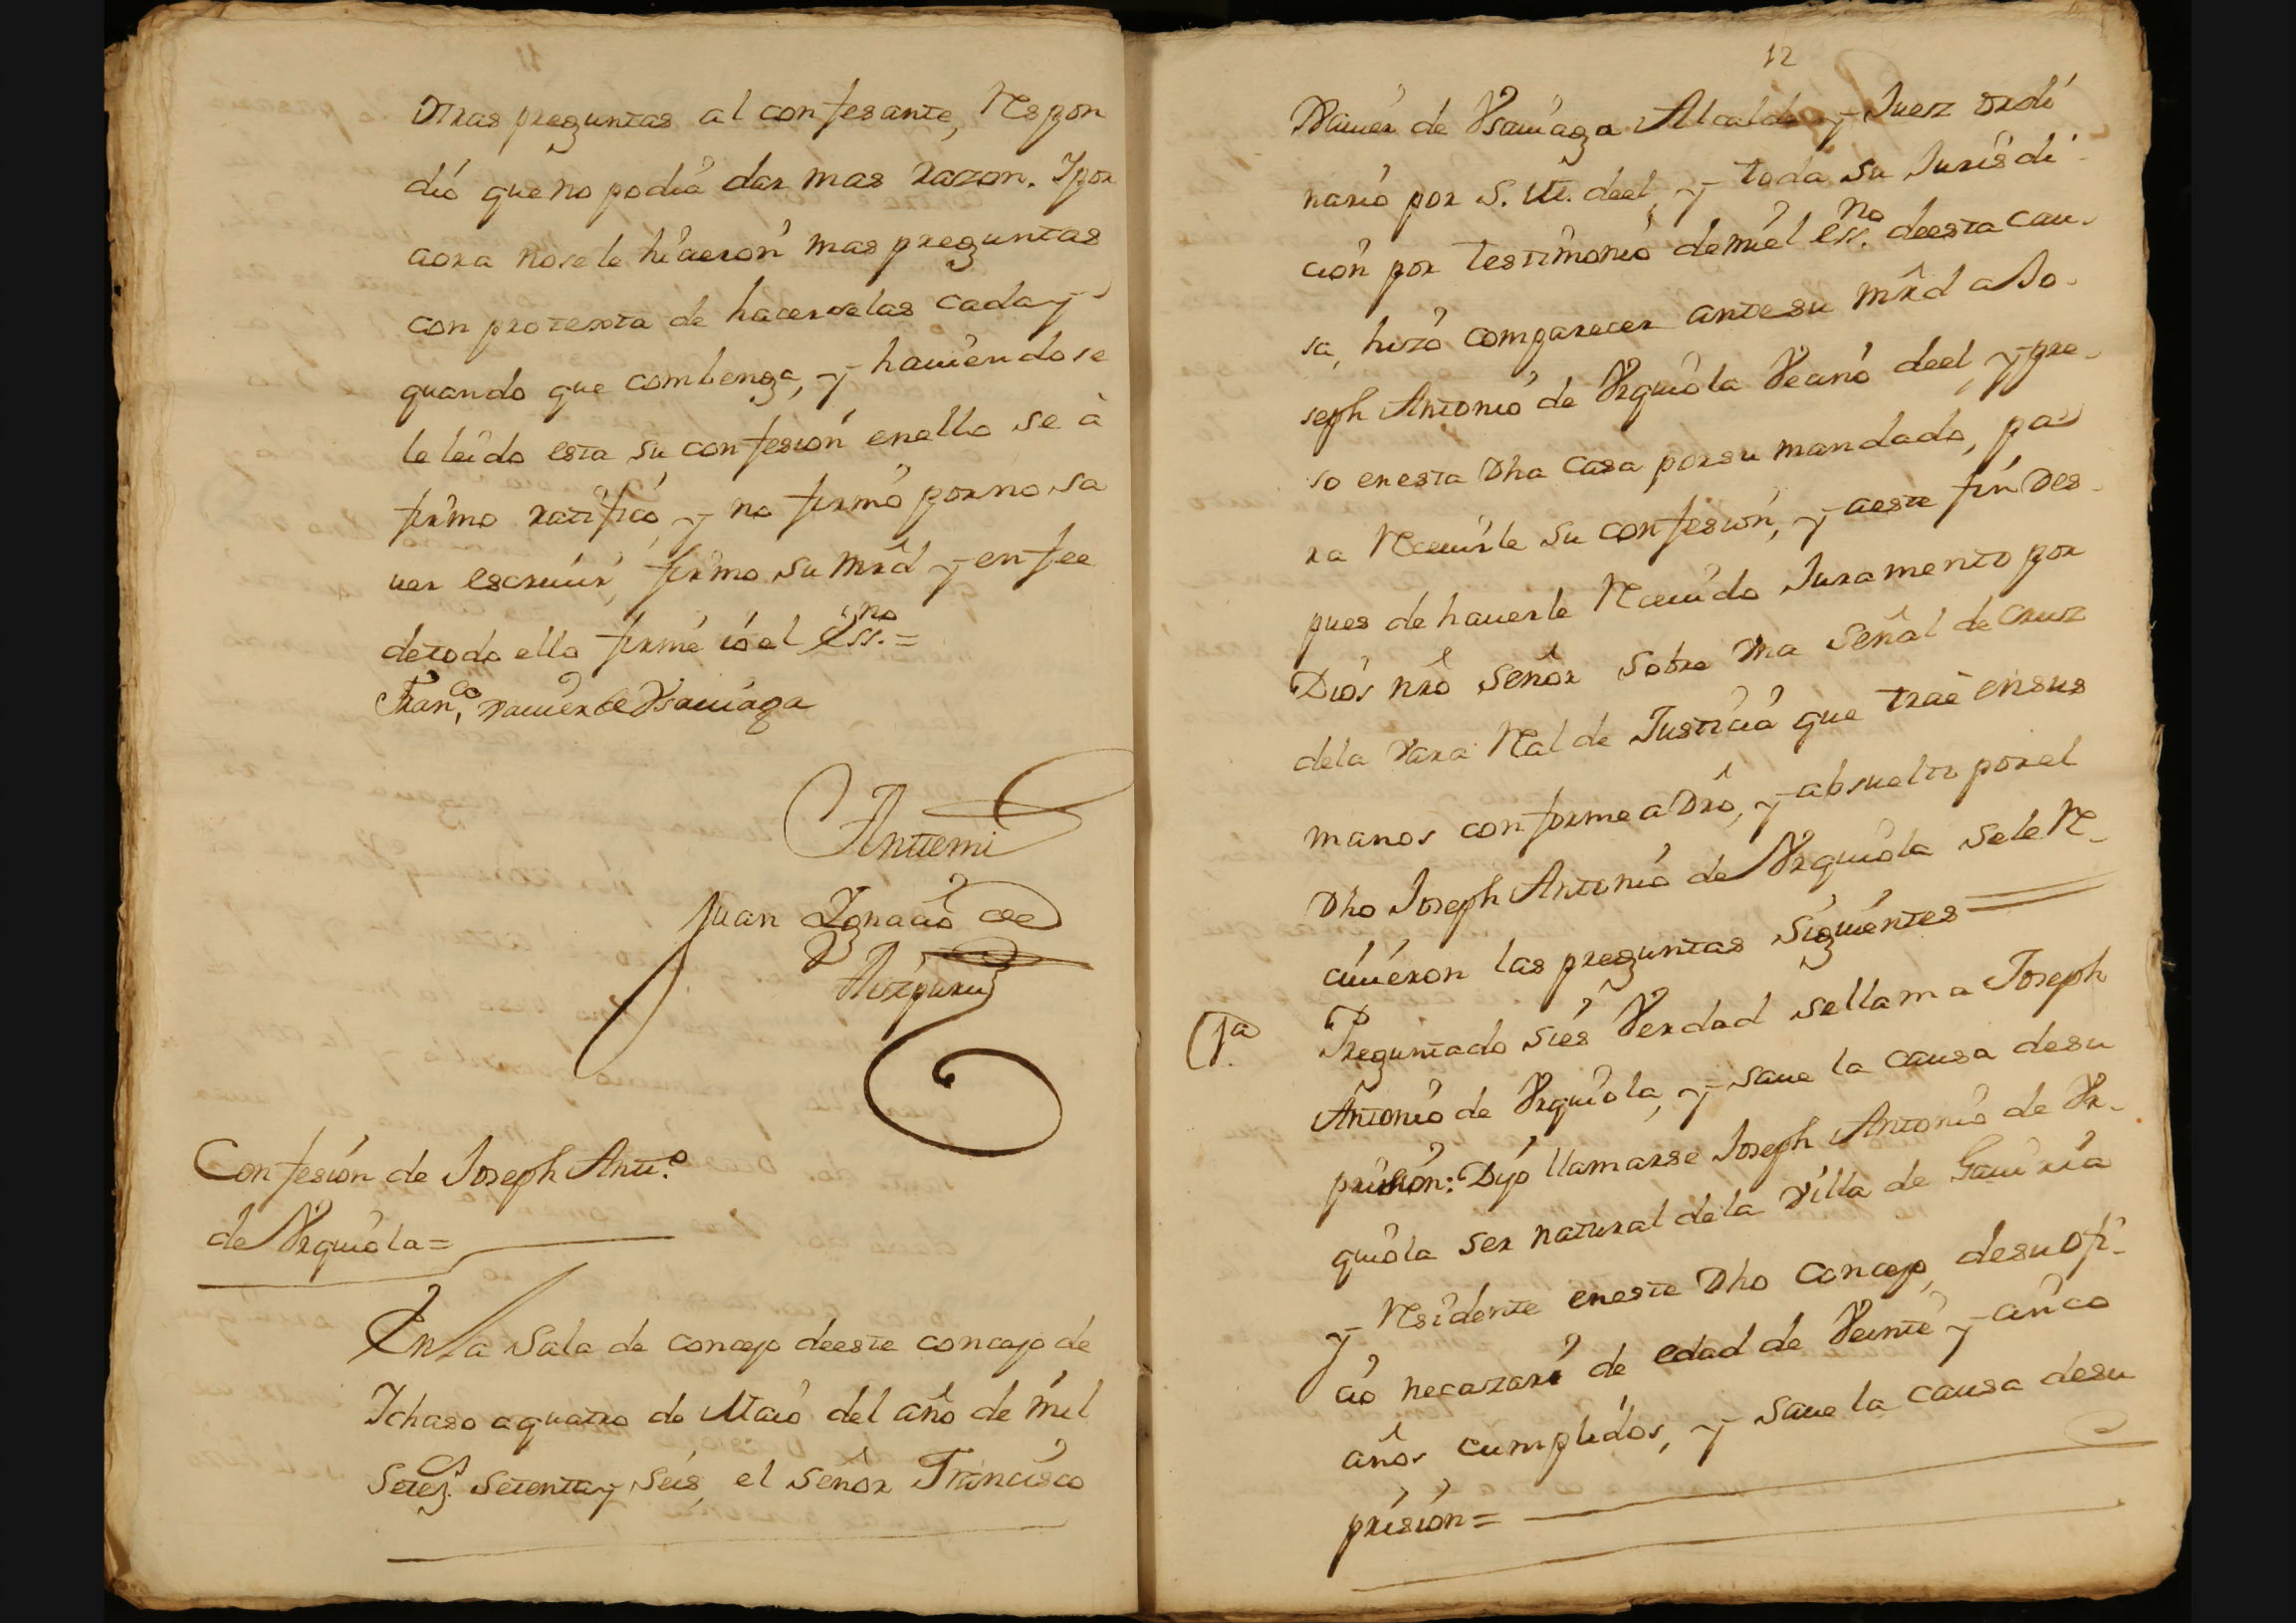 otras preguntas al confesante, Respon
dió que no podia dar mas razon. Y por
aora nosele hicieron mas preguntas
con protexta de hacerselas cada y
quando que combenga, y haviendose
le leido esta su confesión enello se à
firmo ratificó, y no firmó por no sa
ver escrivir, firmo su mrd y en fee
de todo ello firmé ió el Essno.=
Franco. xavier de Vsaviaga
Antemi
Juan Ignacio de
Aizpuru
Confesión de Joseph Anto.
de Vrquiola=
En la Sala de concejo deeste concejo de
Ichaso a quatro de Maio del año de mil
Setezs. Setenta y Seis, el Señor Francisco
12
Xavier de Vsaviaga Alcalde y Juez ordi
nario por S. M. deel, y toda su Jurisdi
ción por testimonio demi el essno. deesta cau-
sa, hizo comparecer antesu mrd a Jo-
seph Antonio de Vrquiola Vecino deel, y pre-
so en esta Dha casa porsu mandado, pa
ra Recivirle su confesión, y aeste fin Des-
pues de haverle Recivido Juramento por
Dios nro Señor sobre Vna Señal de Cruz
dela vara Real de Justicia que traè ensus
manos conforme a Dro, y absuelto porel
Dho Joseph Antonio de Vrquiola sele Re-
civieron las preguntas siguientes
1a. Preguntado siès Verdad sellama Joseph
Antonio de Vrquiola, y save la causa desu
prisión: Dijo llamarse Joseph Antonio de Vr-
quiola ser natural dela villa de Gaviria
y Residente eneste Dho concejo, desu ofi-
cio necazari de edad de Veinte y cinco
años cumplidos, y save la causa desu
prisión=